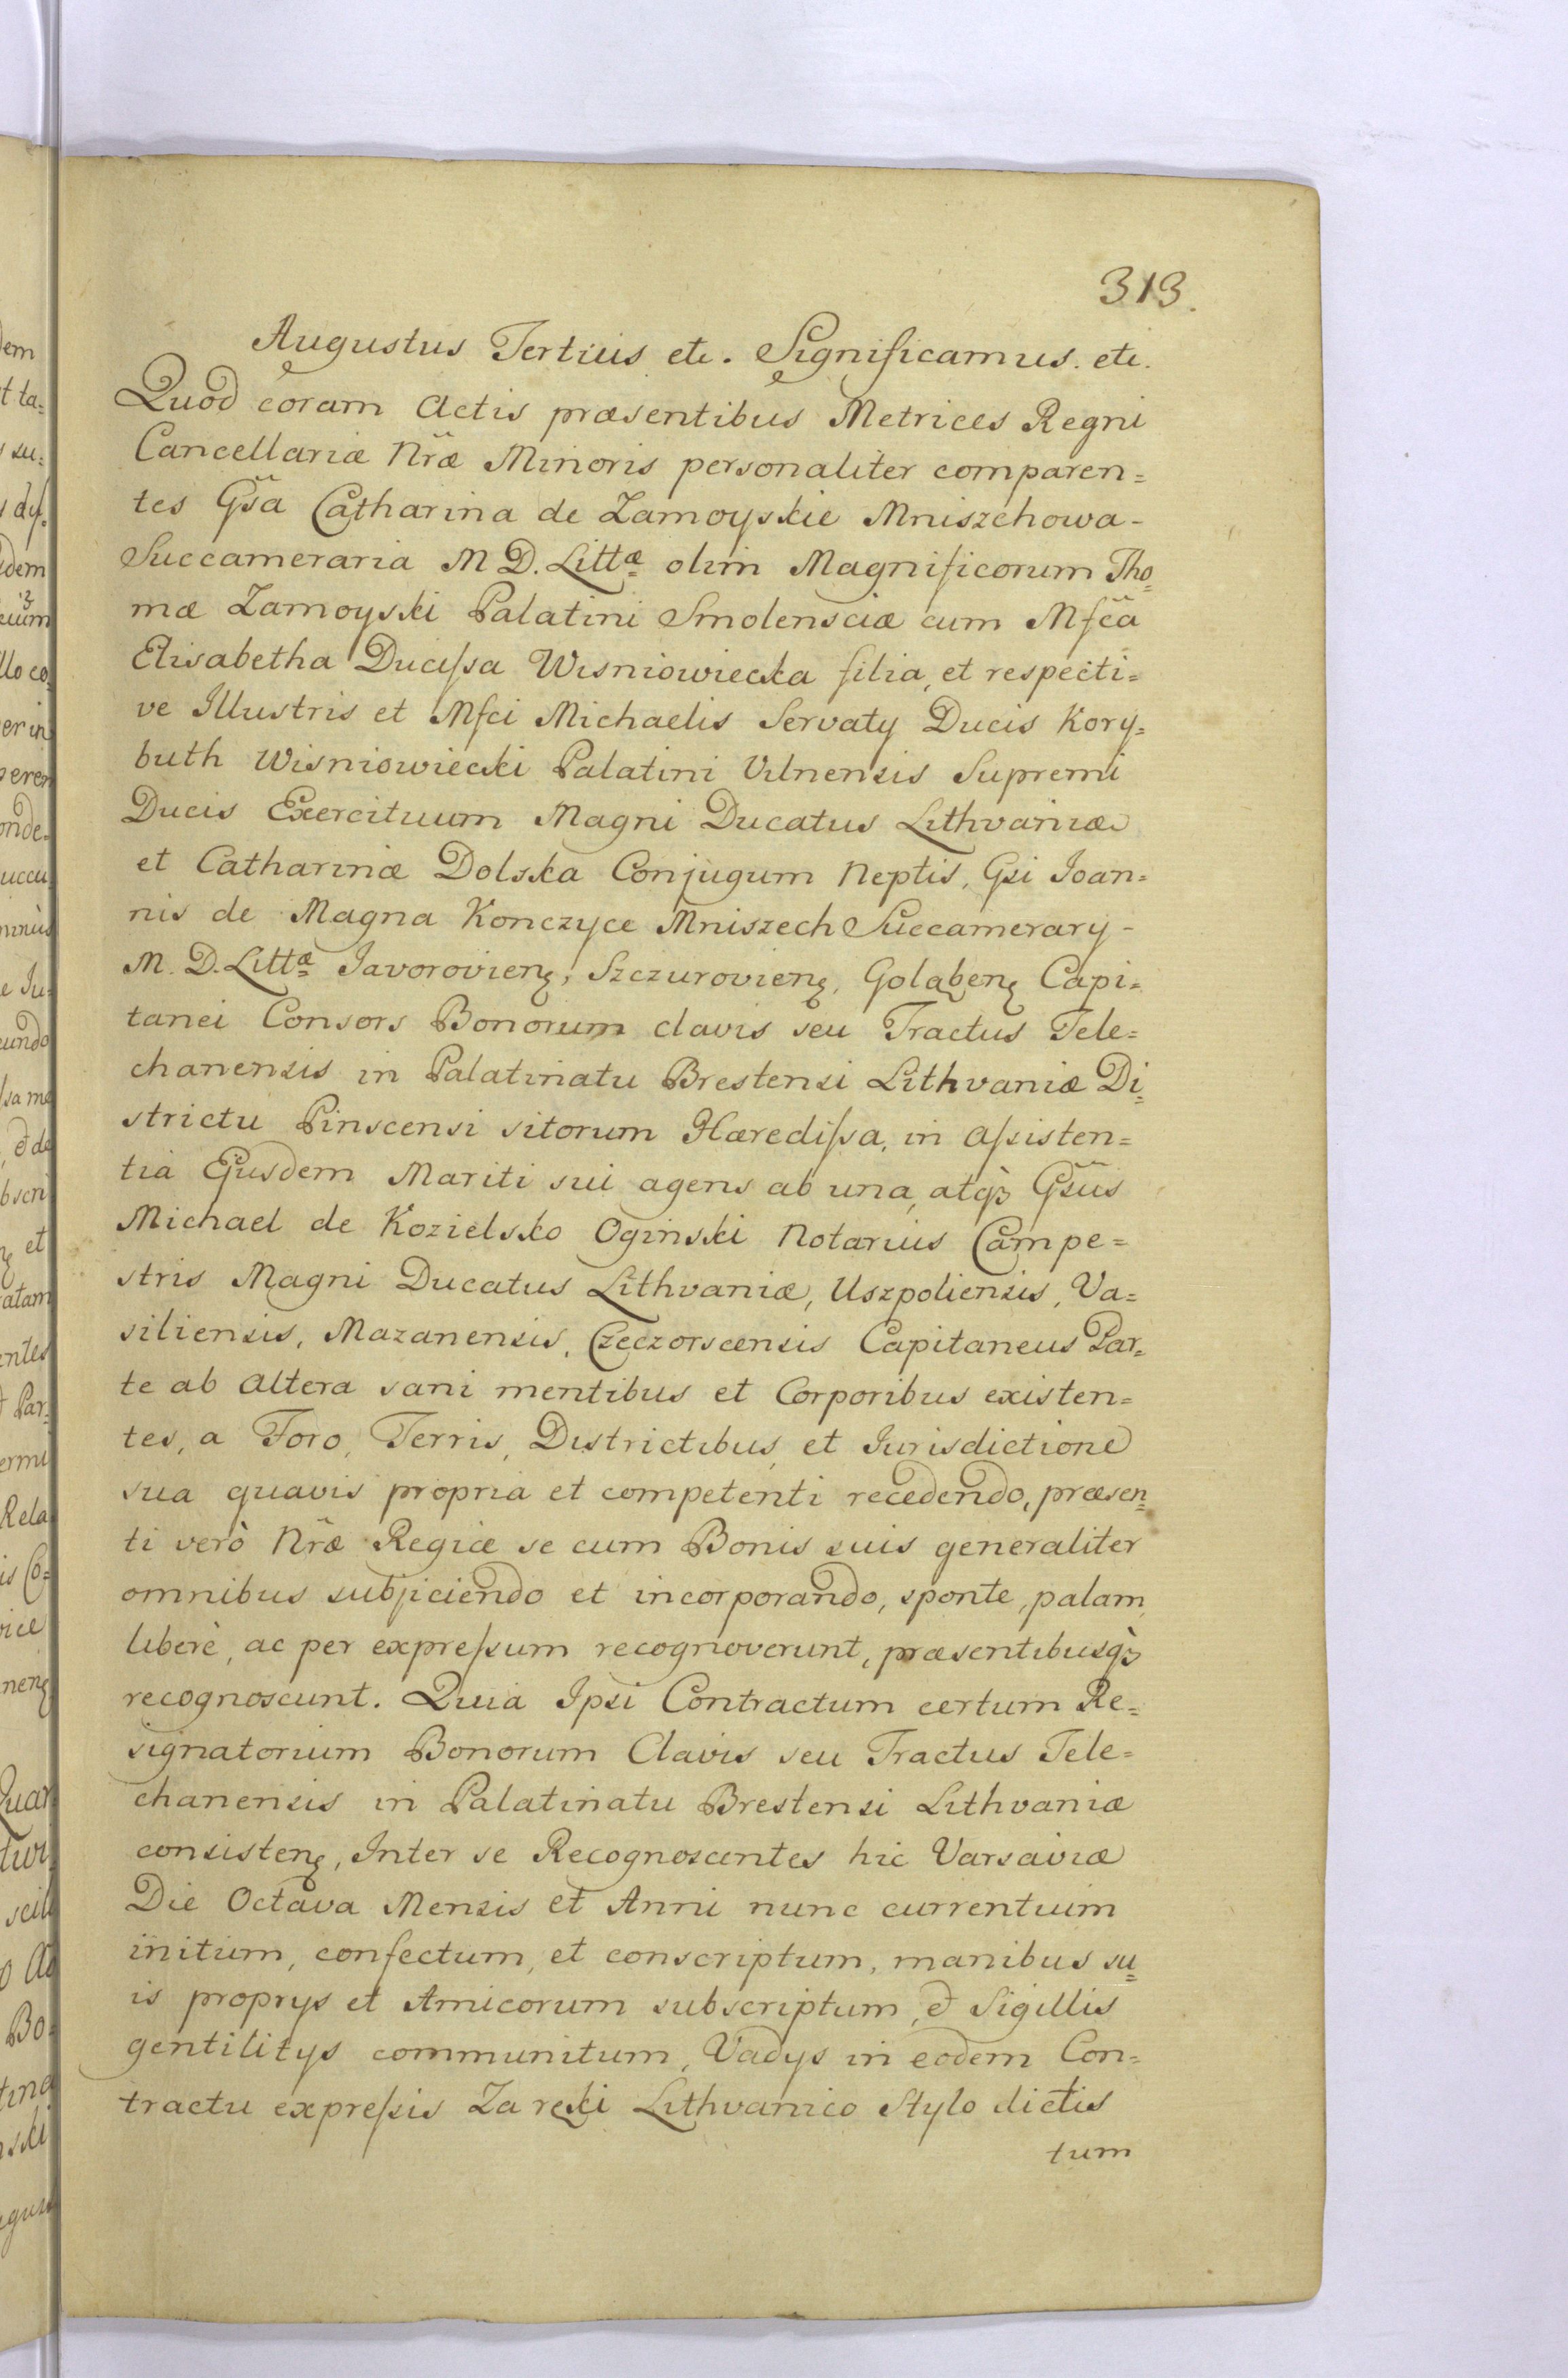 313.
Augustus Tertius etc. Significamus. etc.
Quod coram Actis præsentibus Metrices Regni
Cancellariæ Nr̃æ Minoris personaliter comparen=
tes Gsa Catharina de Zamoyskie Mniszchowa-
Succameraria M D. Littæ olim Magnificorum Tho=
mæ Zamoyski Palatini Smolensciæ cum Mfca
Elisabetha Ducissa Wisniowiecka filia, et respecti=
ve Illustris et Mfci Michaelis Servatÿ Ducis Kory=
buth Wisniowiecki Palatini Vilnensis Supremi
Ducis Exercituum Magni Ducatus Lithvaniæ
et Catharinæ Dolska Conjugum Neptis, Gsi Ioan=
nis de Magna Konczyce Mniszech Succamerarÿ-
M. D. Littæ Iavorovienę, Szczurovienę, Golabenę Capi=
tanei Consors Bonorum clavis seu Tractus Tele=
chanensis in Palatinatu Brestensi Lithvaniæ Di=
strictu Pinscensi sitorum Hæredissa, in assisten=
tia Ejusdem Mariti sui agens ab una, atqꝫ Gsus
Michael de Kozielsko Oginski Notarius Campe=
stris Magni Ducatus Lithvaniæ, Uszpoliensis, Va=
siliensis, Mazanensis, Czeczorscensis Capitaneus Par=
te ab altera sani mentibus et Corporibus existen=
tes, a Foro, Terris, Districtibus, et Iurisdictione
sua quavis propria et competenti recedendo, præsen=
ti verò Nr̃æ Regiæ se cum Bonis suis generaliter
omnibus subjiciendo et incorporando, sponte, palam,
liberè, ac per expressum recognoverunt, præsentibusqꝫ
recognoscunt. Quia Ipsi Contractum certum Re=
signatorium Bonorum Clavis seu Tractus Tele=
chanensis in Palatinatu Brestensi Lithvaniæ
consistenę, Inter se Recognoscentes hic Varsaviæ
Die Octava Mensis et Anni nunc currentium
initum, confectum, et conscriptum, manibus su=
is proprÿs et Amicorum subscriptum, et Sigillis
gentilitÿs communitum, Vadÿs in eodem Con=
tractu expressis Za ręki Lithvanico Stylo dictis
tum